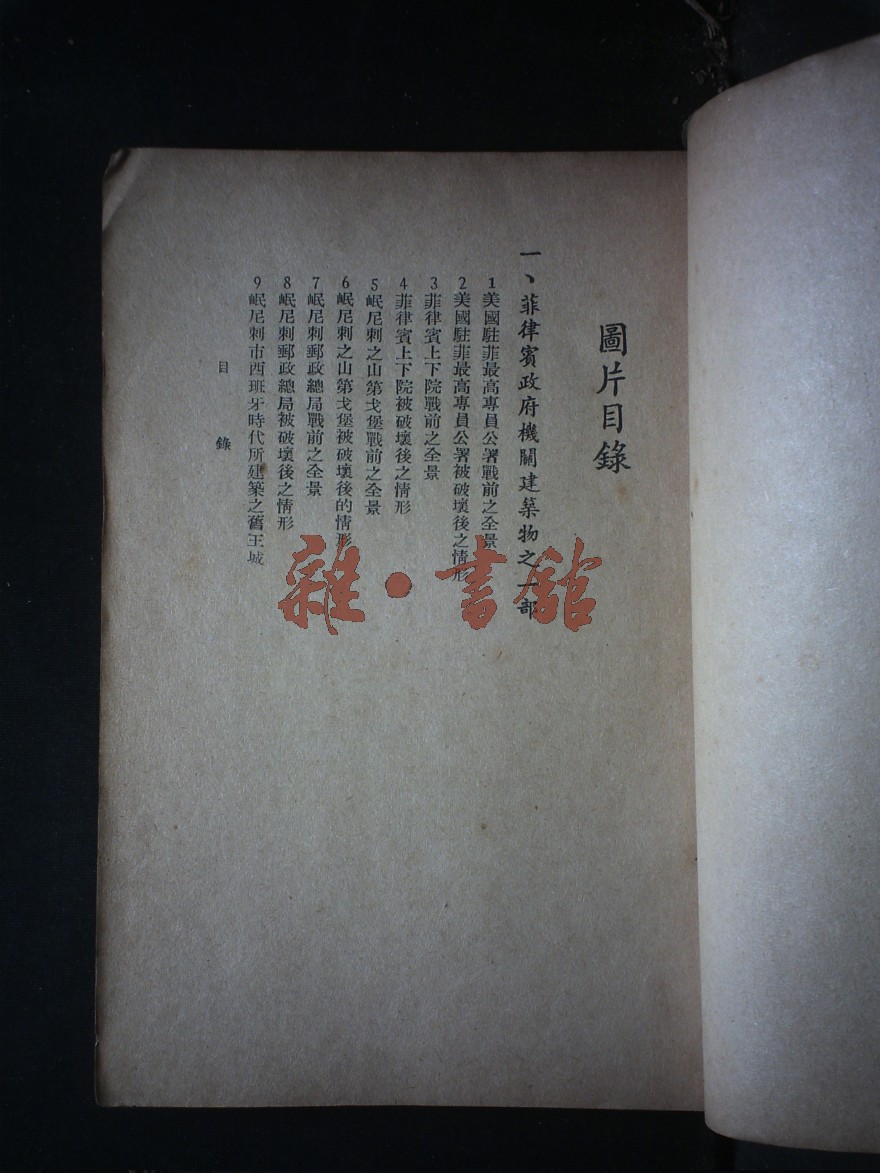 圖片目錄
一、菲律賓政府機關建築物之一部
1 美國駐菲最高專員公署戰前之全景
2 美國駐菲最高專員公署被破壞後之情形
3 菲律賓上下院戰前之全景
4 菲律賓上下院被破壞後之情形
5 岷尼刺之山第戈堡戰前之全景
6 岷尼刺之山第戈堡被破壞後的情形
7 岷尼刺郵政總局戰前之全景
8 岷尼刺郵政總局被破壞後之情形
9 岷尼刺市西班牙時代所建築之舊王城
目錄
雜·書館